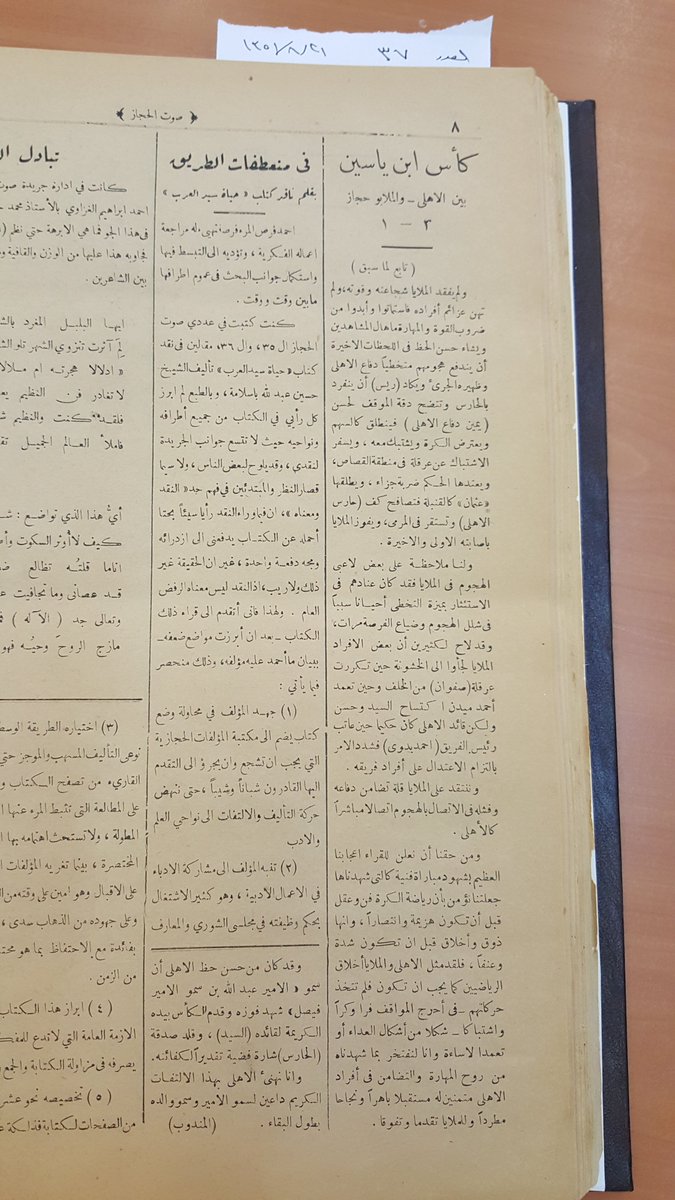 العدد ٣٧ ١٣٥١/٨/٢١
٨
﴿ صوت الحجاز ﴾
كأس ابن ياسين
بين الاهلى – والملايو حجاز
٣ – ١
( تابع لما سبق )
ولم يفقد الملايا شجاعته وقوته، ولم
تهن عزائم أفراده فاستماتوا وأبدوا من
ضروب القوة والمهارة ماهال المشاهدين
ويشاء حسن الحظ فى اللحظات الاخيرة
أن يندفع هجومهم متخطياً دفاع الاهلى
وظهيره الجرىء ويكاد (ريس) أن ينفرد
بالحارس وتتضح دقة الموقف لحسن
( يمين دفاع الاهلى ) فينطلق كالسهم
ويعترض الكرة ويشتبك معه ، ويسفر
الاشتباك عن عرقلة فى منطقة القصاص،
ويعتدها الحكم ضربة جزاء ، ويطلقها
«عثمان» كالقنبلة فتصافح كف (حارس
الاهلى) وتستقر فى المرمى، ويفوز الملايا
باصابته الاولى والاخيرة .
ولنا ملاحظة على بعض لاعبى
الهجوم فى الملايا فقد كان عنادهم فى
الاستئثار بميزة التخطى أحيانا سبباً
فى شلل الهجوم وضياع الفرصة مرات،
وقد لاح لكثيرين أن بعض الافراد
الملايا لجأوا الى الخشونة حين تكررت
عرقلة (صفوان) من الخلف وحين تعمد
أحمد ميدن اكتساح السيد وحسن
ولكن قائد الاهلى كان حكيما حين عاتب
رئيس الفريق (احمد بدوى) فشدد الامر
بالتزام الاعتدال على أفراد فريقه .
وننتقد على الملايا قلة تضامن دفاعه
وفشله فى الاتصال بالهجوم اتصالا مباشراً
كالأهلى .
ومن حقنا أن نعلن للقراء اعجابنا
العظيم بشهود مباراة فنية كالتى شهدناها
جعلتنا نؤمن بأن رياضة الكرة فن وعقل
قبل أن تكون هزيمة وانتصاراً ، وانها
ذوق وأخلاق قبل ان تكون شدة
وعنفاً ، فلقد مثل الاهلى والملايا أخلاق
الرياضيين كما يجب ان تكون فلم تتخذ
حركاتهم – فى أحرج المواقف فرا وكراً
واشتباكا – شكلا من أشكال العداء أو
تعمدا لاساءة وانا لنفتخر بما شهدناه
من روح المهارة والتضامن فى أفراد
الاهلى متمنين له مستقبلا باهراً ونجاحا
مطرداً وللملايا تقدما وتفوقا .
فى منعطفات الطريق
بقلم ناقد كتاب « حياة سيد العرب »
احمد فرص المرء فرصة تهىء له مراجعة
اعماله الفكرية ، وتؤديه الى التبسط فيها
واستكمال جوانب البحث فى عموم اطرافها
مابين وقت ووقت .
كنت كتبت فى عددى صوت
الحجاز ال ٣٥ ، وال ٣٦ ، مقدلين فى نقد
كتاب « حياة سيد العرب » تأليف الشيخ
حسين عبد لله باسلامة ، وبالطبع لم ابرز
كل رأيى فى الكتاب من جميع أطرافه
ونواحيه حيث لا تتسع جوانب الجريدة
لنقدى ، وقد يلوح لبعض الناس ، ولا سيما
قصار النظر والمبتدئين فى فهم حد « النقد
ومعناه » ، ان فيماوراء النقد رأيا سيئاً بحتا
أحمله عن الكتاب يدفعنى الى ازدرائه
ومجه دفعة واحدة ، غير ان الحقيقة غير
ذلك ولاريب ، اذ النقد ليس معناه الرفض
العام . ولهذا فانى أتقدم الى قراء ذلك
الكتاب – بعد ان أبرزت مواضع ضعفه –
ببيان ما أحمد عليه مؤلفه ، وذلك منحصر
فيما يأتى :
(١) جهد المؤلف فى محاولة وضع
كتاب يضم الى مكتبة المؤلفات الحجازية
التي يجب ان تشجع وان يجرؤ الى التقدم
اليها القادرون شباناً وشيباً ، حتى تنهض
حركة التأليف والالتفات الى نواحي العلم
والادب
(٢) تنبه المؤلف الى مشاركة الادباء
فى الاعمال الادبية ، وهو كثير الاشتغال
بحكم وظيفته فى مجلسى الشورى والمعارف
وقد كان من حسن حظ الاهلى أن
سمو « الامير عبد الله بن سمو الامير
فيصل » شهد فوزه وقدم الكأس بيده
الكريمة لقائده (السيد) ، وقلد صدقة
(الحارس) شارة فضية تقديراً لكفائته.
وانا نهنىء الاهلى بهذا الالتفات
الكريم داعين لسمو الامير وسمو والده
بطول البقاء . (المندوب)
تبادل
كانت في ادارة جريدة صوت
احمد ابراهيم الغزاوي بالأستاذ محمد
فى هذا الجو فما هي الابرهة حتى نظم
فجاوبه هذا عليها من الوزن والقافية
بين الشاعرين .
ايها البلبل المغرد
لِمَ آثرت تنزوي الشهر تلو
« ادلالا هجرته ام ملالا
لا تغادر فن النظيم
فلقد كنت والنظيم
فاملأ العالم الجميل
أيُّ هذا الذي تواضع :
كيف لا أوثر السكوت
انما قلتُه تظالع
قد عصانى وما تجافيت
وتعالى جد ( الآله )
مازج الروحَ وحيُه
(٣) اختياره الطريقة
نوعى التأليف المسهب والموجز حتى
القارىء من تصفح الكتاب
على المطالعة التى تثبط المرء عنها
المطولة ، ولا تستحث اهتمامه بها
المختصرة ، بينما تغريه المؤلفات
على الاقبال وهو امين على وقته من
وعلى جهوده من الذهاب سدى ،
بفائدة مع الاحتفاظ بما هو
من الزمن .
(٤) ابراز هذا الكتاب
الازمة العامة التى لا تدع
يصرفه فى مزاولة الكتابة والجمع
(٥) تخصيصه نحو
من الصفحات لكتابة